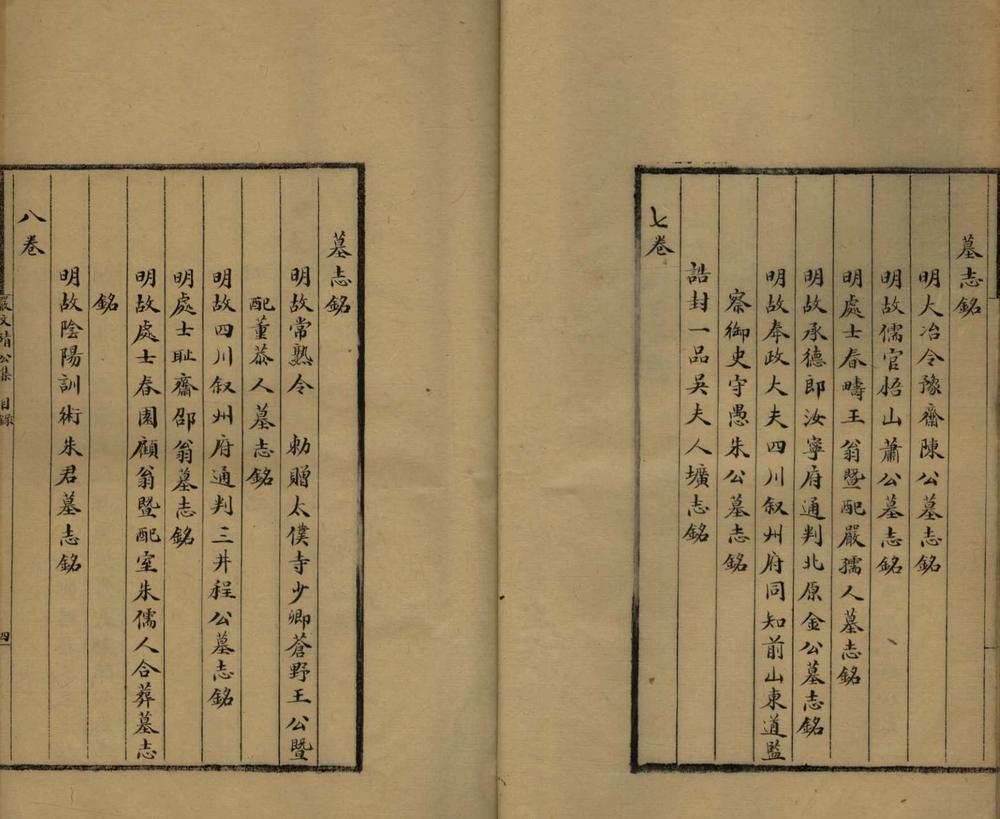 墓志銘
明大冶令豫齋陳公墓志銘
明故儒官梧山蕭公墓志銘
明處士春疇王翁暨配嚴孺人墓志銘
明故承德郎汝寧府通判北原金公墓志銘
明故奉政大夫四川叙州府同知前山東道監
察御史守愚朱公墓志銘
誥封一品吳夫人壙志銘
七卷
墓志銘
明故常熟令 勅贈太僕寺少卿蒼野王公暨
配董恭人墓志銘
明故四川叙州府通判三井程公墓志銘
明處士耻齋邵翁墓志銘
明故處士春園顧翁暨配室朱儒人合葬墓志
銘
明故陰陽訓術朱君墓志銘
八卷
嚴文靖公集 目錄 四